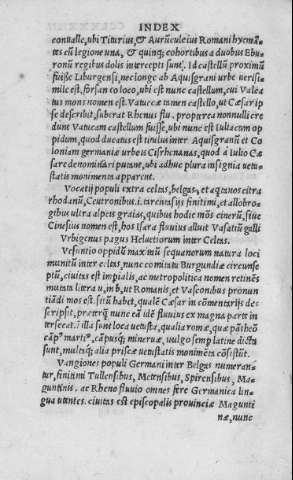 INDEX
conualle, ubi Titurius, & Aurūculeius Romani hyemā-
tes cū legione una, & quinq; cohortibus a duobus Ebu-
ronū regibus dolis intercepti sunt. Id castellū proximū
fuisse Liburgensi, nec longe ab Aquisgrani urbe uerisi-
mile est, forsan eo loco, ubi est nunc castellum, cui Valca
tus mons nomen est. Vatucæ tamen castello, ut Cæsar ip
se describit, suberat Rhenus flu. propterea nonnulli cre
dunt Vatucam castellum fuisse, ubi nunc est Iuliacum op
pidum, quod ducatus est titulus inter Aquisgranū et Co
loniam germaniæ urbem Cisrhenanas, quod a Iulio Cæ
sare denominari putant, ubi adhuc plura insignia uetu-
statis monimenta apparent.
Vocatij populi extra celtas, belgas, et aqtanos citra
rhodanū, Centronibus. i. tarentasijs finitimi, et allobro-
gibus ultra alpeis graias, quibus hodie mōs cinerū, siue
Cinesius nomen est, hos Isara fluuius alluit Vasatiū galli
Vrbegenus pagus Heluetiorum inter Celtas.
Vesontio oppidū maximū sequanorum natura loci
munitū inter celtas, nunc comitatu Burgundiæ circunse
ptū, ciuitas est impialis, ac metropolitica nomen retinēs
mutata litera u, in b, ut Romani, et Vasconibus pronun
tiādi mos est. sitū habet, qualē Cæsar in cōmentarijs de-
scripsit, præterq̄ nunc eā idē fluuius ex magna parte in
tersecat. ī illa sunt loca uetusta, qualia romæ, quæ pātheō
cāpꝰ martiꝰ, cāpusq; mineruæ, uulgo semp latine dicta
sunt, multisq; alia priscæ uetustatis monimēta cōsistūt.
Vangiones populi Germani inter Belgas numeran-
tur, finitimi Tullensibus, Metensibus, Spirensibus, Ma-
guntinis. ac Rheno fluuio omnes fere Germanica lin-
gua utentes. ciuitas est episcopalis prouinciæ Magunti
næ, nunc